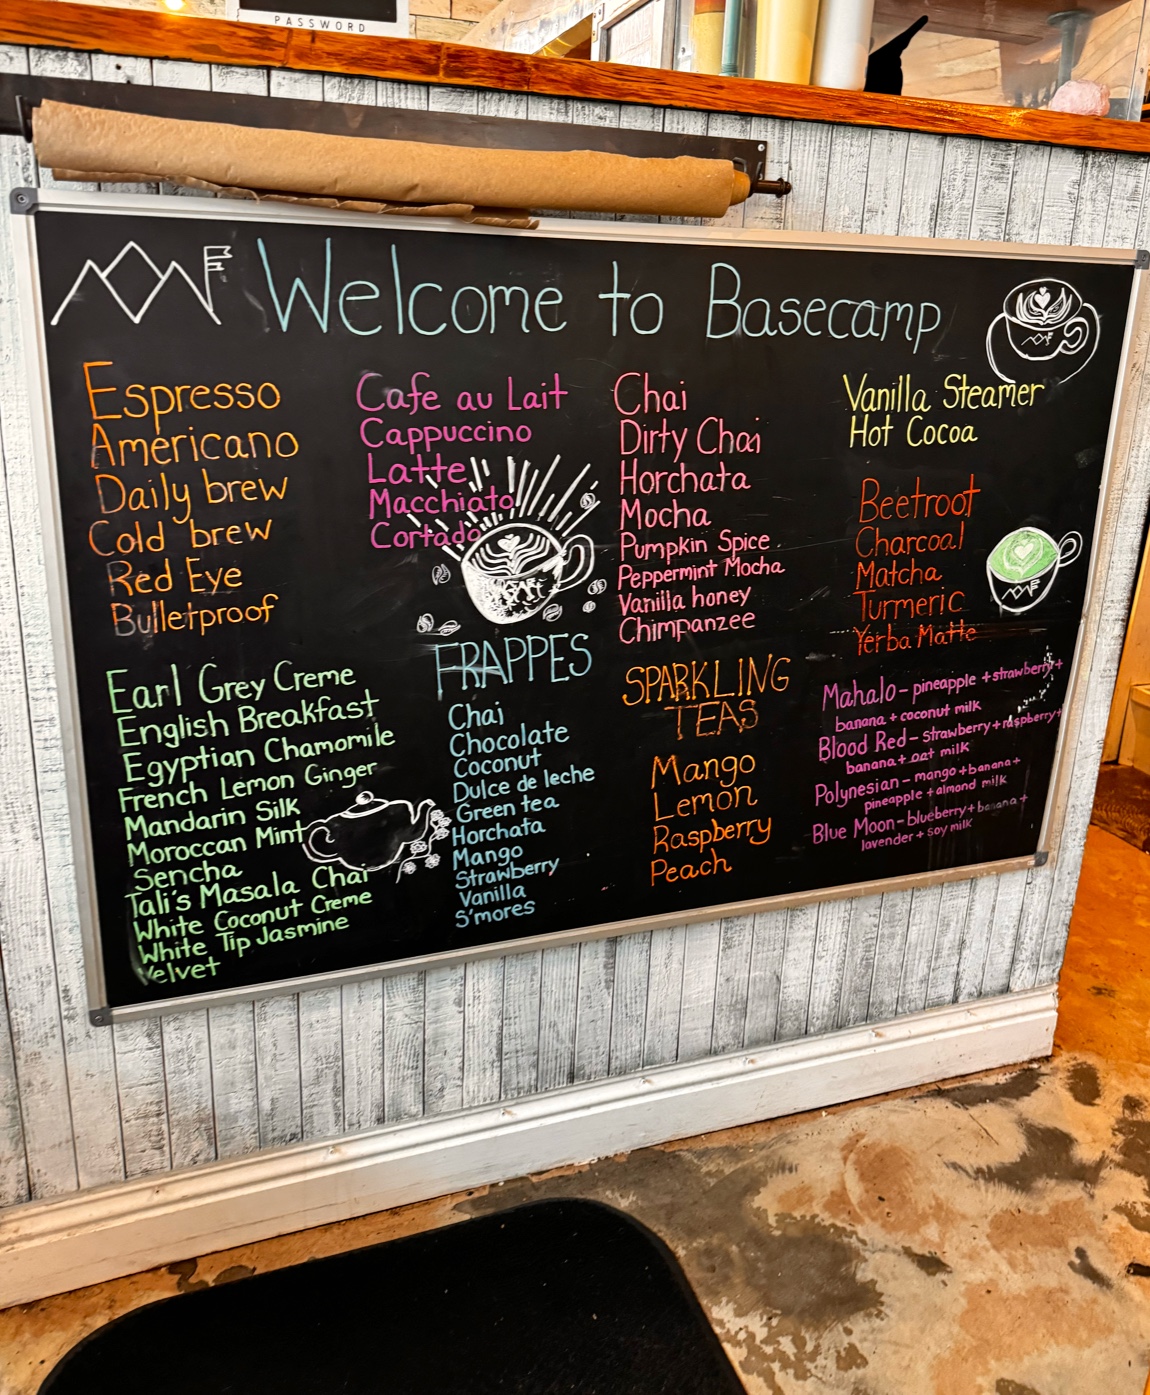 PASSWORD
Welcome to Basecamp
Espresso
Americano
Daily brew
Cold brew
Red Eye
Bulletproof
Cafe au Lait
Cappuccino
Latte
Macchiato
Cortado
Chai
Dirty Chai
Horchata
Mocha
Pumpkin Spice
Peppermint Mocha
Vanilla honey
Chimpanzee
Vanilla Steamer
Hot Cocoa
Beetroot
Charcoal
Matcha
Turmeric
Yerba Matte
Earl Grey Creme
English Breakfast
Egyptian Chamomile
French Lemon Ginger
Mandarin Silk
Moroccan Mint
Sencha
Tali's Masala Chai
White Coconut Creme
White Tip Jasmine
Velvet
FRAPPES
Chai
Chocolate
Coconut
Dulce de leche
Green tea
Horchata
Mango
Strawberry
Vanilla
S'mores
SPARKLING
TEAS
Mango
Lemon
Raspberry
Peach
Mahalo - pineapple + strawberry +
banana + coconut milk
Blood Red - strawberry + raspberry +
banana + oat milk
Polynesian - mango + banana +
pineapple + almond milk
Blue Moon - blueberry + banana +
lavender + soy milk